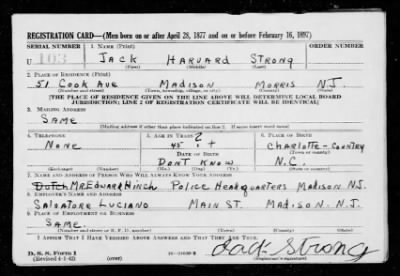 REGISTRATION CARD—(Men born on or after April 28, 1877 and on or before February 16, 1897)
SERIAL NUMBER 1. NAME (Print) ORDER NUMBER
U 103 JACK HARVARD STRONG
(First) (Middle) (Last)
2. PLACE OF RESIDENCE (Print)
51 COOK AVE MADISON MORRIS N.J.
(Number and street) (Town, township, village, or city) (County) (State)
[THE PLACE OF RESIDENCE GIVEN ON THE LINE ABOVE WILL DETERMINE LOCAL BOARD
JURISDICTION; LINE 2 OF REGISTRATION CERTIFICATE WILL BE IDENTICAL]
3. MAILING ADDRESS
SAME
[Mailing address if other than place indicated on line 2. If same insert word same]
4. TELEPHONE 5. AGE IN YEARS 6. PLACE OF BIRTH
NONE 45 ? + CHARLOTTE-COUNTRY
DATE OF BIRTH (Town or county)
DONT KNOW N.C.
7. NAME AND ADDRESS OF PERSON WHO WILL ALWAYS KNOW YOUR ADDRESS
DUTCH MR EDWARD HINCH POLICE HEADQUARTERS MADISON N.J.
8. EMPLOYER'S NAME AND ADDRESS
SALVATORE LUCIANO MAIN ST. MADISON. N.J.
9. PLACE OF EMPLOYMENT OR BUSINESS
SAME.
(Number and street or R. F. D. number) (Town) (County) (State)
I AFFIRM THAT I HAVE VERIFIED ABOVE ANSWERS AND THAT THEY ARE TRUE.
D. S. S. Form 1
(Revised 4-1-42) (over)
Jack Strong